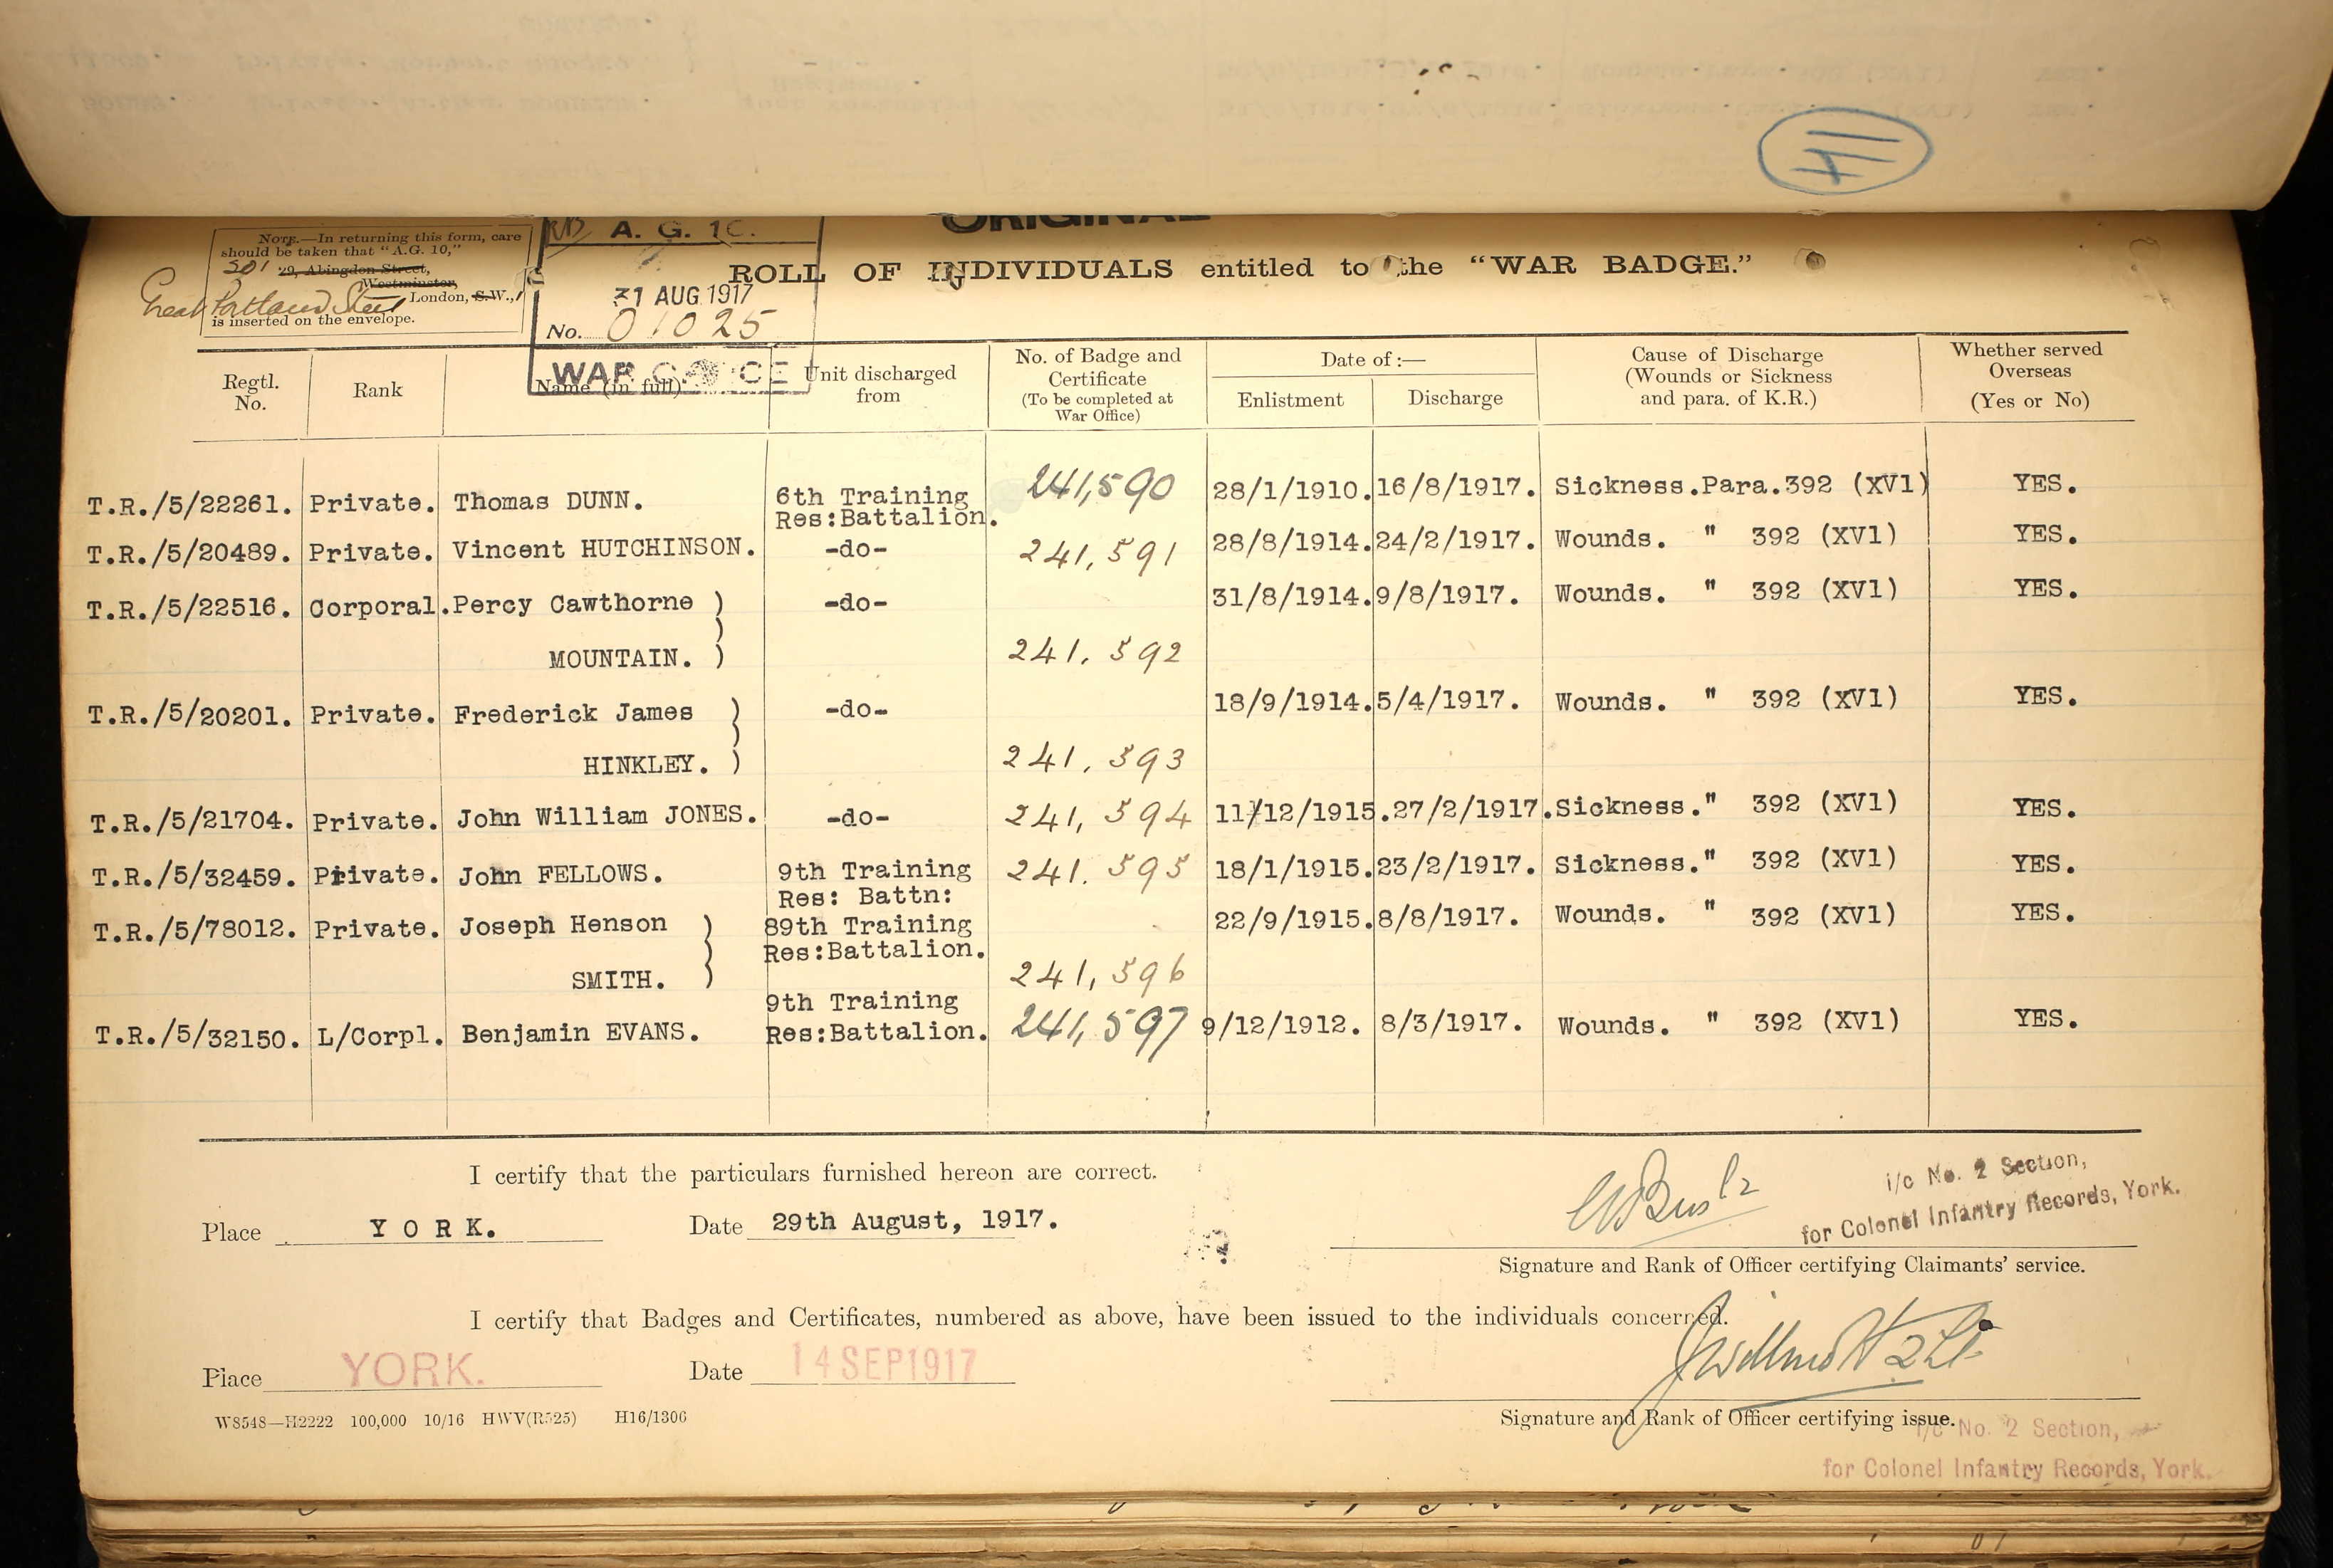 ORIGINAL
NOTE.—In returning this form, care
should be taken that "A.G. 10,"
501 29, Abingdon Street,
Westminster,
Great Portland Street London, S.W.,1
is inserted on the envelope.
A. G. 10.
31 AUG 1917
No. 01025
WAR OFFICE
ROLL OF INDIVIDUALS entitled to the "WAR BADGE."
Regtl. No. | Rank | Name (in full) | Unit discharged from | No. of Badge and Certificate (To be completed at War Office) | Date of:— Enlistment | Discharge | Cause of Discharge (Wounds or Sickness and para. of K.R.) | Whether served Overseas (Yes or No)
T.R./5/22261. Private. Thomas DUNN. 6th Training 241,590 28/1/1910. 16/8/1917. Sickness.Para.392 (XV1) YES.
Res:Battalion.
T.R./5/20489. Private. Vincent HUTCHINSON. -do- 241,591 28/8/1914. 24/2/1917. Wounds. " 392 (XV1) YES.
T.R./5/22516. Corporal. Percy Cawthorne ) -do- 31/8/1914. 9/8/1917. Wounds. " 392 (XV1) YES.
)
MOUNTAIN. ) 241,592
T.R./5/20201. Private. Frederick James ) -do- 18/9/1914. 5/4/1917. Wounds. " 392 (XV1) YES.
)
HINKLEY. ) 241,593
T.R./5/21704. Private. John William JONES. -do- 241,594 11/12/1915. 27/2/1917. Sickness." 392 (XV1) YES.
T.R./5/32459. Private. John FELLOWS. 9th Training 241.595 18/1/1915. 23/2/1917. Sickness." 392 (XV1) YES.
Res: Battn:
T.R./5/78012. Private. Joseph Henson ) 89th Training 22/9/1915. 8/8/1917. Wounds. " 392 (XV1) YES.
) Res:Battalion.
SMITH. ) 241,596
9th Training
T.R./5/32150. L/Corpl. Benjamin EVANS. Res:Battalion. 241,597 9/12/1912. 8/3/1917. Wounds. " 392 (XV1) YES.
I certify that the particulars furnished hereon are correct.
i/c No. 2 Section,
for Colonel Infantry Records, York.
Place YORK. Date 29th August, 1917.
Signature and Rank of Officer certifying Claimants' service.
I certify that Badges and Certificates, numbered as above, have been issued to the individuals concerned.
Place YORK. Date 14 SEP 1917
W8548—H2222 100,000 10/16 HWV(R525) H16/1306
Signature and Rank of Officer certifying issue.
i/c No. 2 Section,
for Colonel Infantry Records, York.